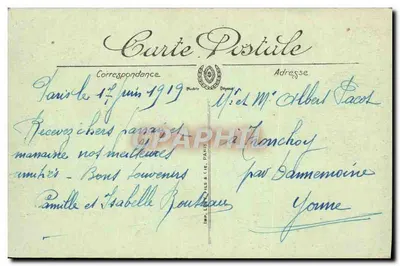 Carte Postale
Correspondance
Adresse
Paris le 1er juin 1919
Recevez chers parrain et
marraine nos meilleures
amitiés - Bons Souvenirs
Camille et Isabelle
Mr et Me Albert Pacot
à Tronchoy
par Dannemoine
Yonne